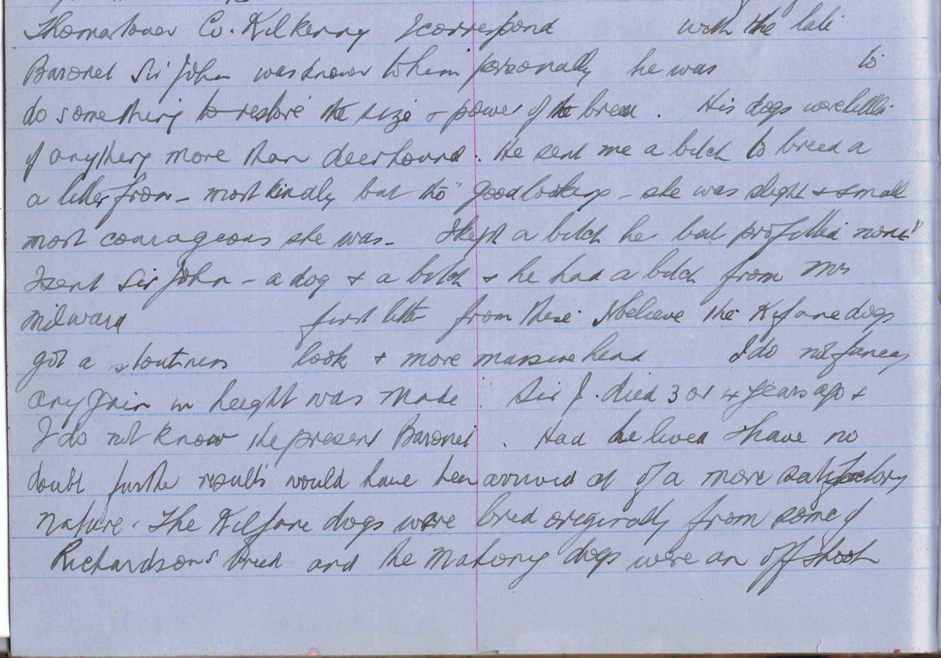 Thomastown Co. Kilkenny I correspond with the late
Baronet Sir John was known to him personally he was to
do something to restore the size + power of the breed. His dogs were little
if anything more than deerhound. He sent me a bitch to breed a
a letter from - most kindly but tho' goodlooking - she was slight + small
most courageous she was - I kept a bitch he but profitted none"
I sent Sir John - a dog + a bitch + he had a bitch from Mrs
Milward first letter from these I believe the Kilfane dogs
got a stoutness look + more massive head I do not fancy
any gain in height was made. Sir J. died 3 or 4 years ago +
I do not know the present Baronet. Had he lived I have no
doubt further results would have been arrived at of a more satisfactory
nature. The Kilfane dogs were bred originally from some of
Richardson's breed and the Mahony dogs were an off shoot